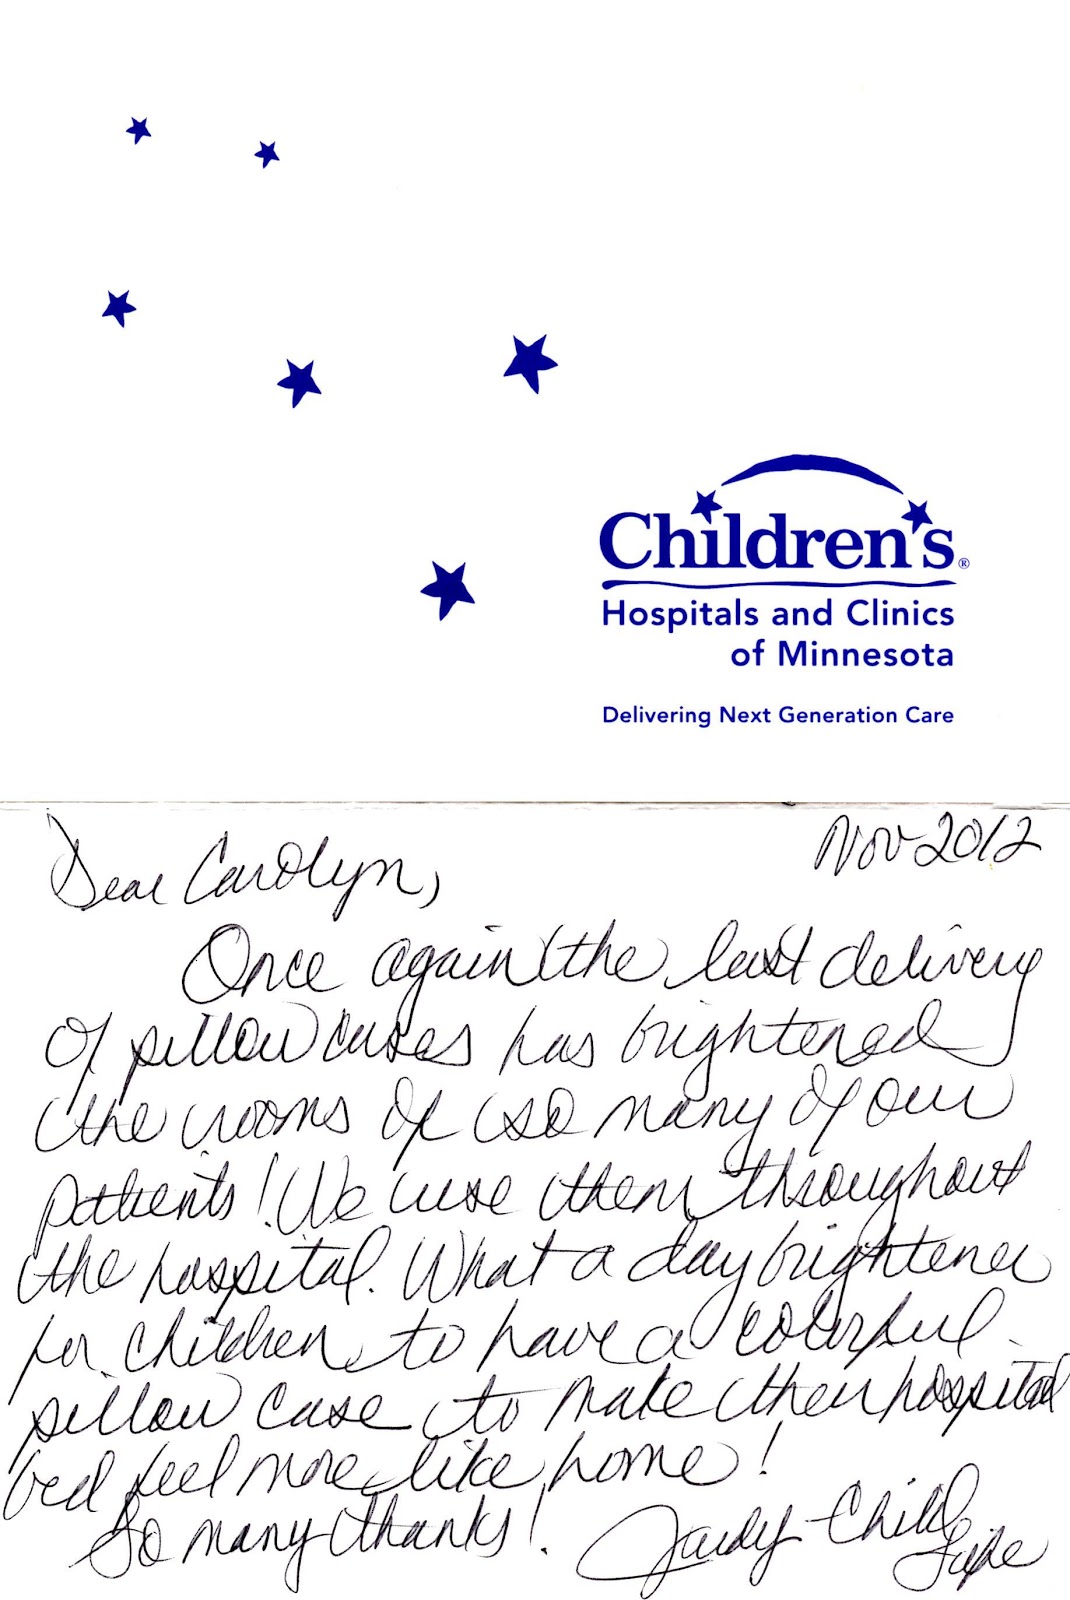 Children's®
Hospitals and Clinics
of Minnesota
Delivering Next Generation Care
Nov 2012
Dear Carolyn,
Once again the last delivery
of pillow cases has brightened
the rooms of so many of our
patients! We use them throughout
the hospital. What a day brightener
for children to have a colorful
pillow case to make their hospital
bed feel more like home!
So many thanks! Judy - Child
Life